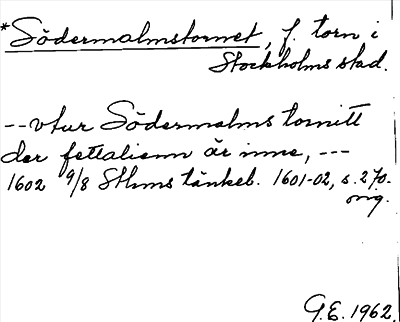 *Södermalmstornet, f. torn i
Stockholms stad.
--vtur Södermalms tornitt
der fettalienn är inne, ---
1602 9/8 Sthms tänkeb. 1601-02, s. 270.
orig.
G.E. 1962.